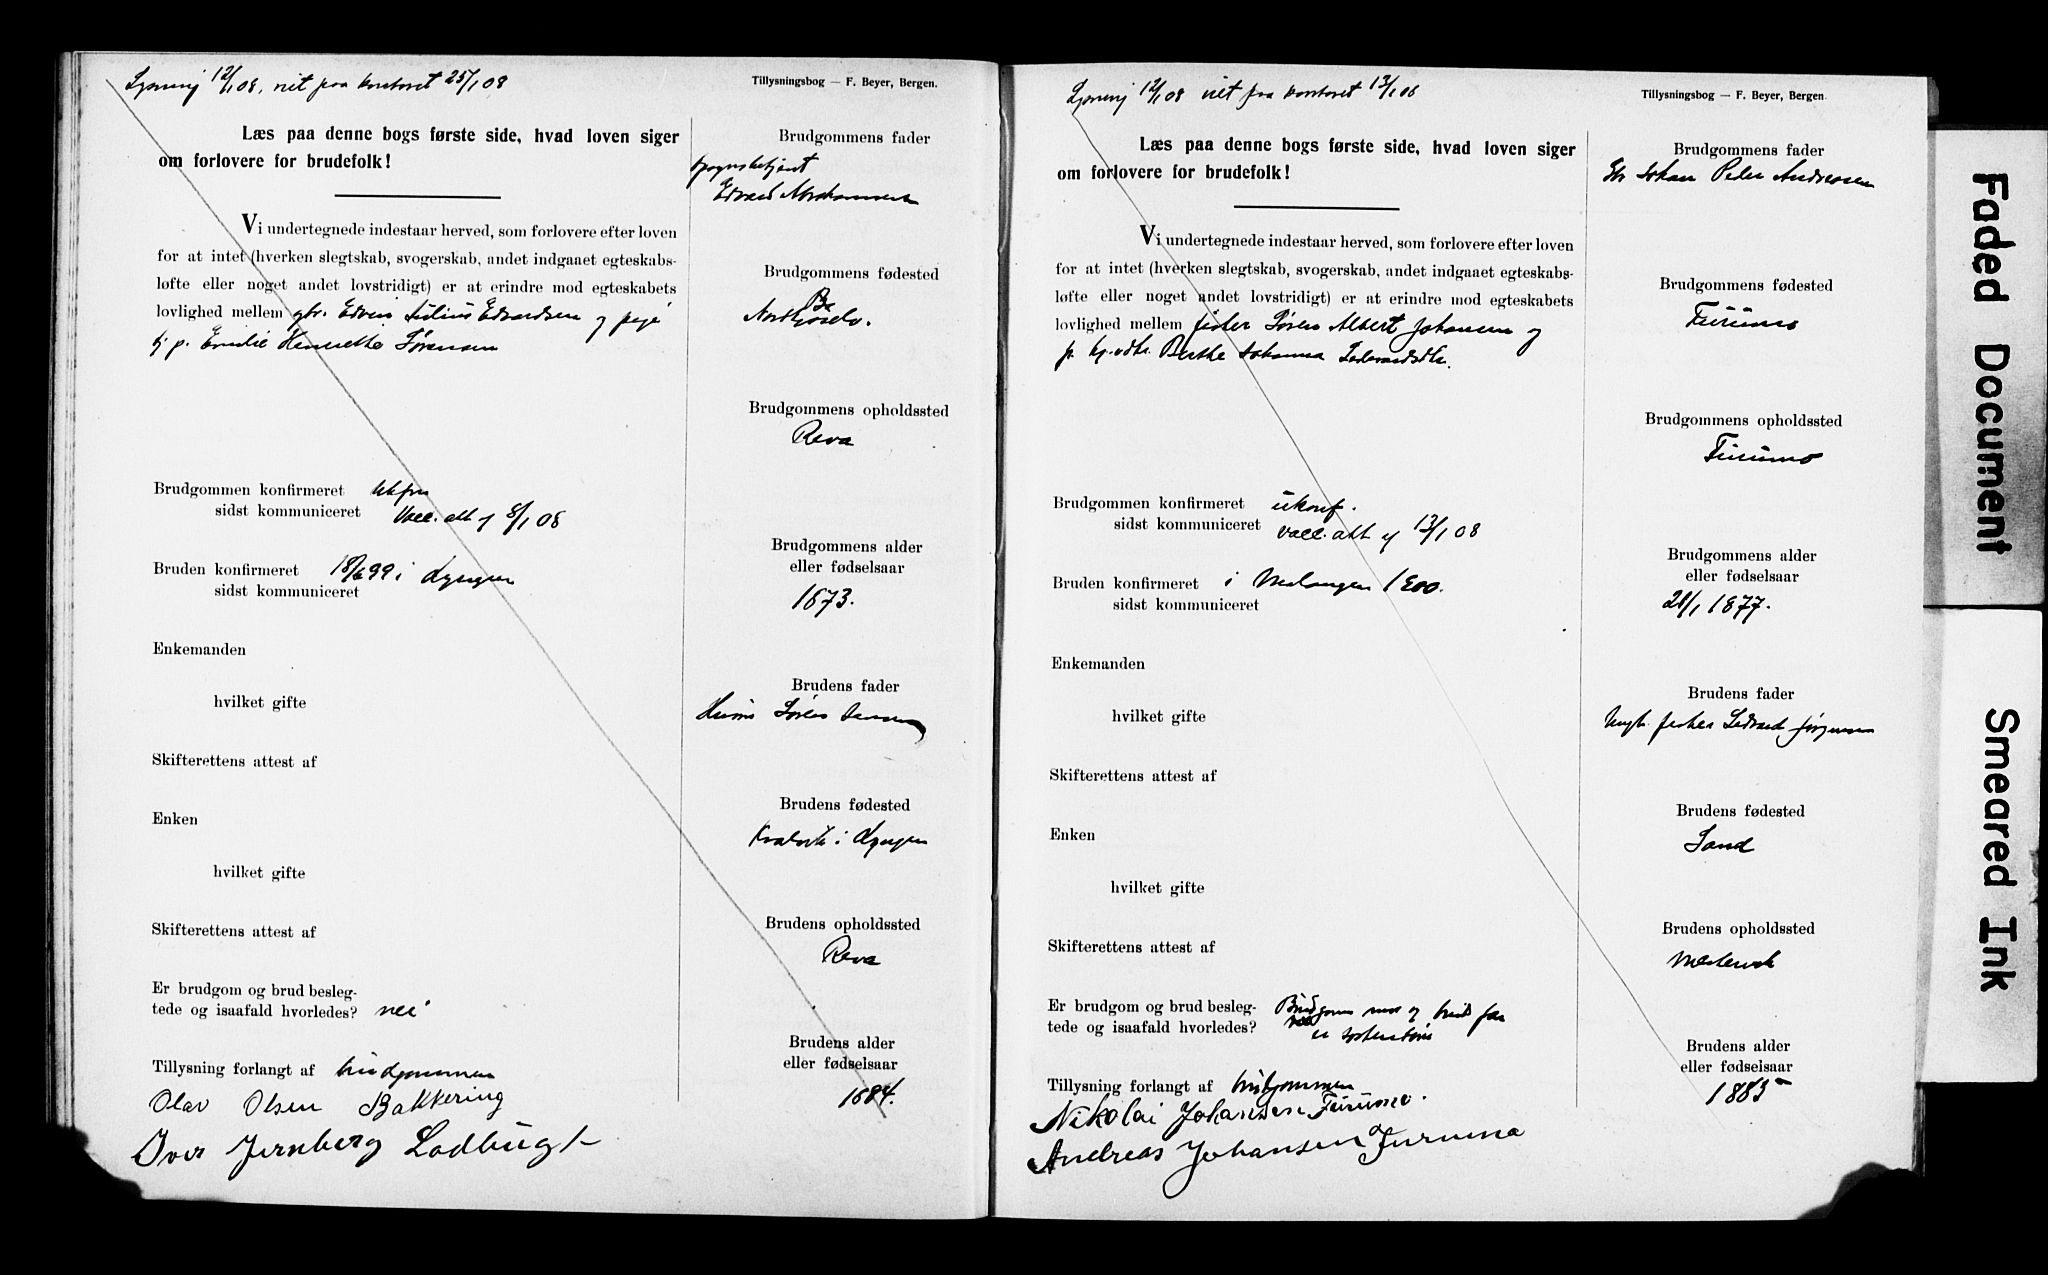 Lysning 12/1 08, viet paa kontoret 25/1 08
Tillysningsbog — F. Beyer, Bergen.
Læs paa denne bogs første side, hvad loven siger
om forlovere for brudefolk!
Vi undertegnede indestaar herved, som forlovere efter loven
for at intet (hverken slegtskab, svogerskab, andet indgaaet egteskabs-
løfte eller noget andet lovstridigt) er at erindre mod egteskabets
lovlighed mellem gbr. Edvin Julius Edvardsen og pige
p. Emilie Henrette Sørensen
Brudgommen konfirmeret
sidst kommuniceret Vacc. att 8/1 08
Bruden konfirmeret 18/6 99 i Lyngen
sidst kommuniceret
Enkemanden
hvilket gifte
Skifterettens attest af
Enken
hvilket gifte
Skifterettens attest af
Er brudgom og brud besleg-
tede og isaafald hvorledes? nei
Tillysning forlangt af brudgommen
Olav Olsen Bakkering
Iver Jernberg Lodbugt
Brudgommens fader
Edvard Abrahamsen
Brudgommens fødested
Brudgommens opholdssted
Rova
Brudgommens alder
eller fødselsaar
1873.
Brudens fader
Husm Søren Jensen
Brudens fødested
i Lyngen
Brudens opholdssted
Rova
Brudens alder
eller fødselsaar
1884.
Lysning 12/1 08 viet paa kontoret 13/1 08
Tillysningsbog — F. Beyer, Bergen.
Læs paa denne bogs første side, hvad loven siger
om forlovere for brudefolk!
Vi undertegnede indestaar herved, som forlovere efter loven
for at intet (hverken slegtskab, svogerskab, andet indgaaet egteskabs-
løfte eller noget andet lovstridigt) er at erindre mod egteskabets
lovlighed mellem fisker Søren Albert Johansen og
Berthe Johanna Ledvardsdtr.
Brudgommen konfirmeret ukonf.
sidst kommuniceret vacc. att 13/1 08
Bruden konfirmeret i Malangen 1900.
sidst kommuniceret
Enkemanden
hvilket gifte
Skifterettens attest af
Enken
hvilket gifte
Skifterettens attest af
Er brudgom og brud besleg- Brudgoms mor og bruds far
tede og isaafald hvorledes? er søstenbørn
Tillysning forlangt af brudgommen
Nikolai Johansen Furumo.
Andreas Johansen Furumo
Brudgommens fader
Johan Peder Andreassen
Brudgommens fødested
Furumo
Brudgommens opholdssted
Furumo
Brudgommens alder
eller fødselsaar
28/1 1877.
Brudens fader
fisker Ledvard Jørgensen
Brudens fødested
Sand
Brudens opholdssted
Mestervik
Brudens alder
eller fødselsaar
1885
Faded Document
Smeared Ink